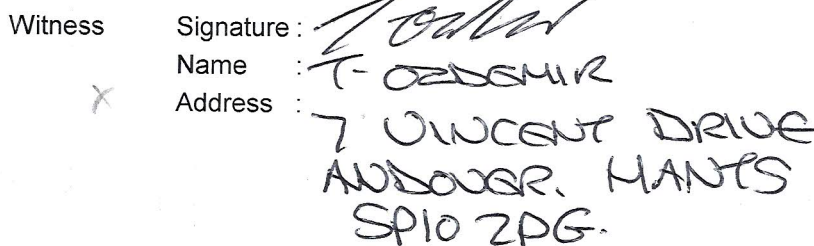 Witness Signature :
Name : T- OZDEMIR
Address :
7 VINCENT DRIVE
ANDOVER. HANTS
SP10 2PG.